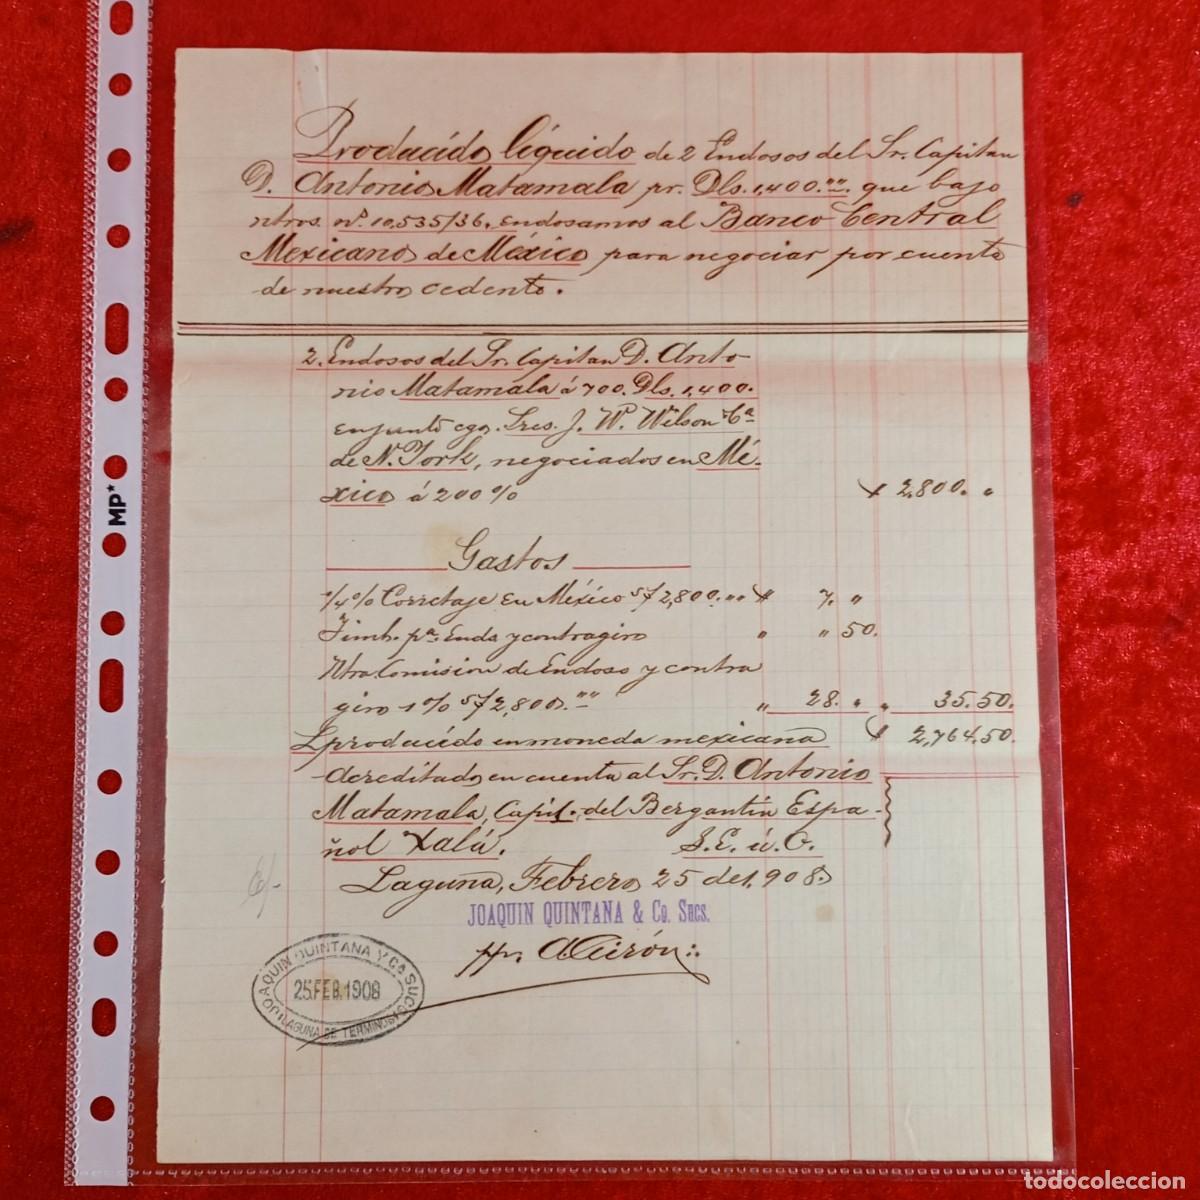 Producido líquido de 2 Endosos del Sr. Capitan
D. Antonio Matamala pr. Dls. 1,400."" que bajo
ntros. nº. 10,535/36, endosamos al Banco Central
Mexicano de Mexico para negociar por cuenta
de nuestro cedente.
2. Endosos del Sr. Capitan D. Anto-
nio Matamala á 700. Dls. 1,400.
en junto cgo. Sres. J. W. Wilson Cª
de N. York, negociados en Mé-
xico á 200% $ 2,800. "
Gastos
1/4% Corretaje en México s/ 2,800."" $ 7. "
Timb. pª. Endo y contragiro " " 50.
Ntra. Comision de Endoso y contra
giro 1% s/ 2,800."" " 28. " " 35.50.
L producido en moneda mexicana $ 2,764.50.
acreditado en cuenta al Sr. D. Antonio
Matamala, Capit. del Bergantin Espa-
ñol Xalú. S. E. ú O.
Laguna, Febrero 25 de 1,908
JOAQUIN QUINTANA & Co. Sucs.
JOAQUIN QUINTANA Y Cª SUCS
25.FEB.1908
LAGUNA DE TERMINOS
MP*
todocoleccion